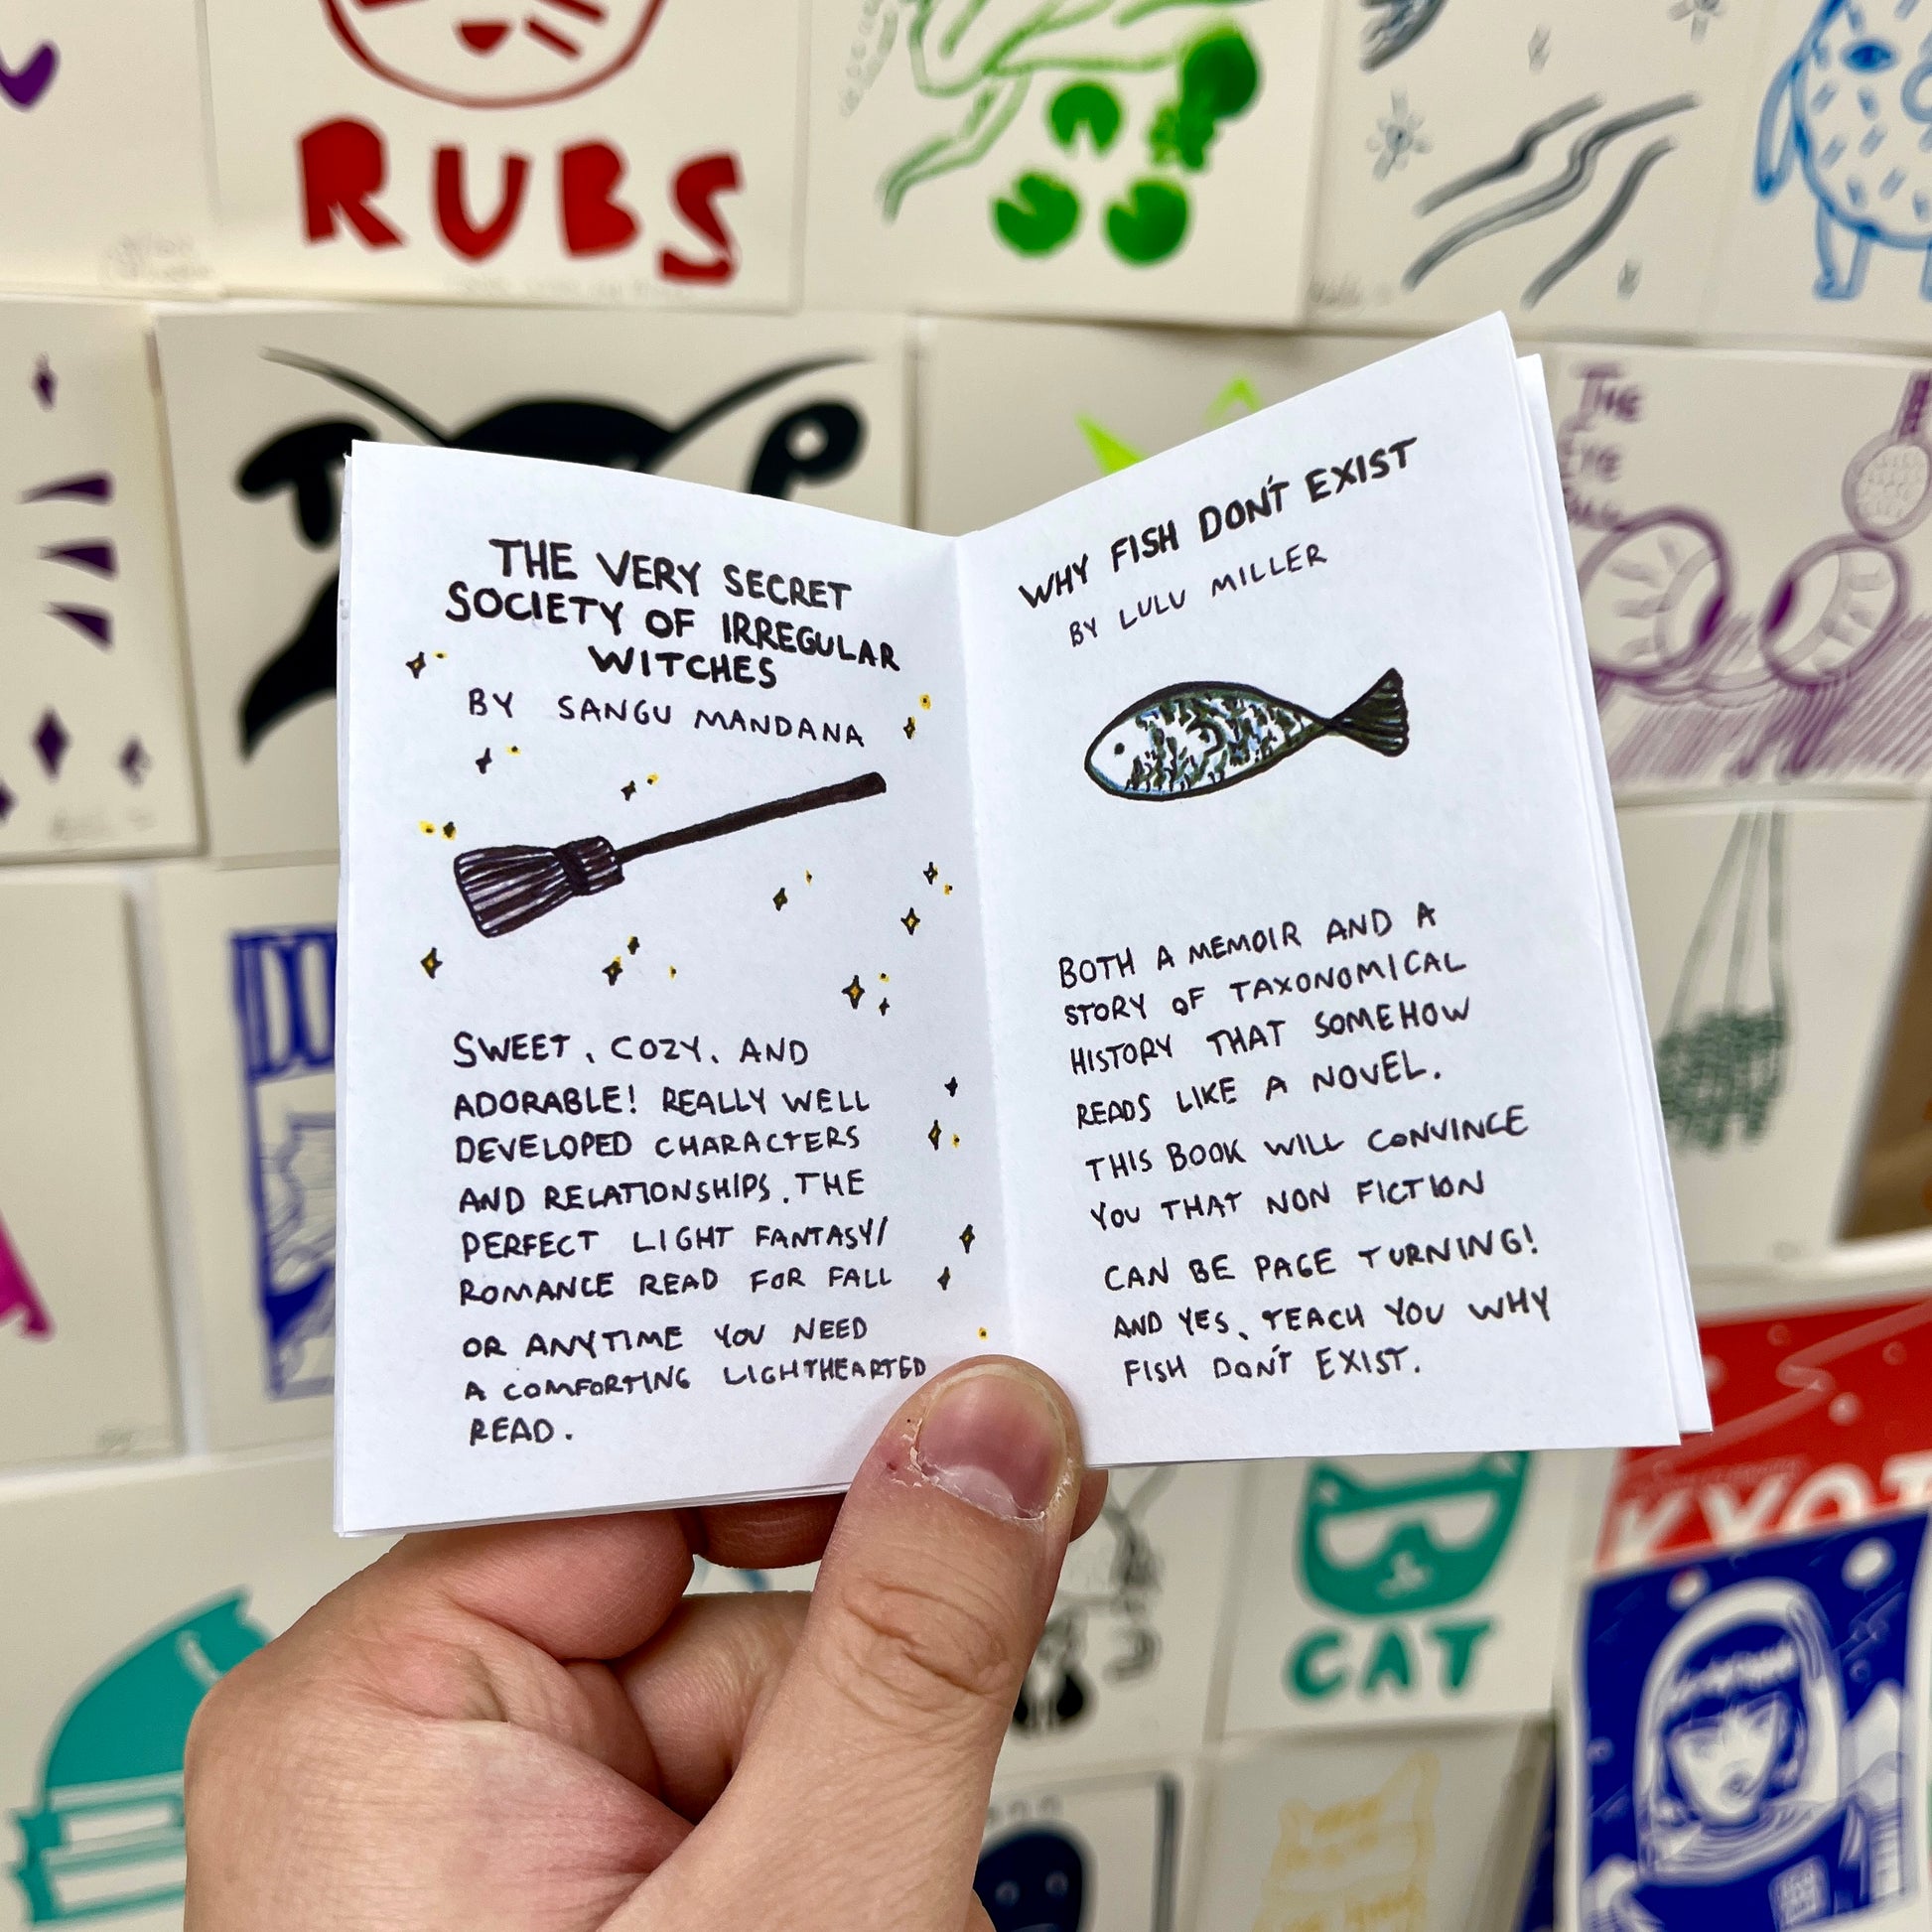 RUBS
THE VERY SECRET
SOCIETY OF IRREGULAR
WITCHES
BY SANGU MANDANA
SWEET, COZY, AND
ADORABLE! REALLY WELL
DEVELOPED CHARACTERS
AND RELATIONSHIPS. THE
PERFECT LIGHT FANTASY/
ROMANCE READ FOR FALL
OR ANYTIME YOU NEED
A COMFORTING LIGHTHEARTED
READ.
WHY FISH DON'T EXIST
BY LULU MILLER
BOTH A MEMOIR AND A
STORY OF TAXONOMICAL
HISTORY THAT SOMEHOW
READS LIKE A NOVEL.
THIS BOOK WILL CONVINCE
YOU THAT NON FICTION
CAN BE PAGE TURNING!
AND YES, TEACH YOU WHY
FISH DON'T EXIST.
THE
EYE
CAT